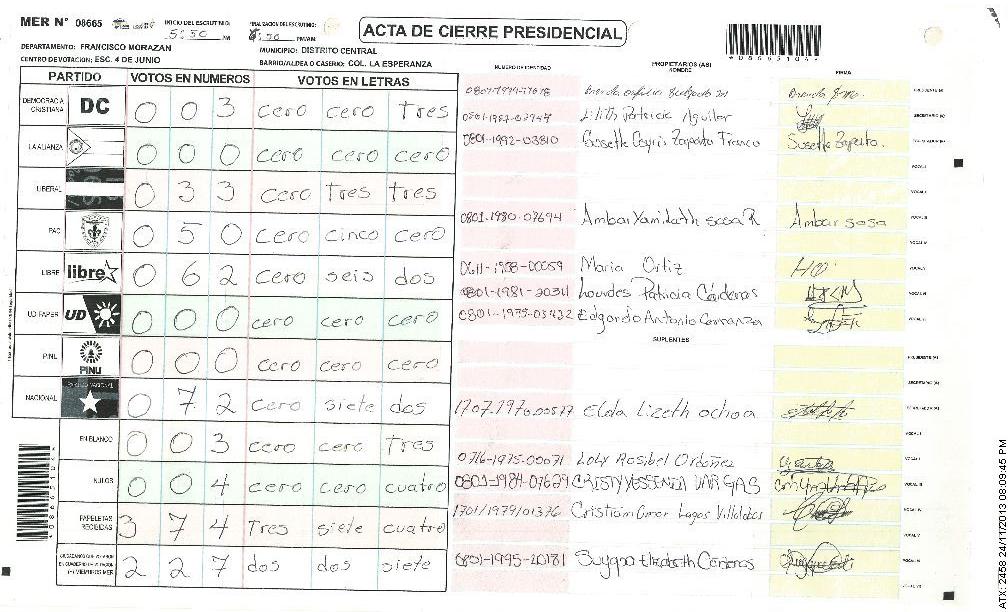 MER N° 08665
INICIO DEL ESCRUTINIO:
5:30 PM
FINALIZACION DEL ESCRUTINIO:
PM/AM
ACTA DE CIERRE PRESIDENCIAL
*08665104*
DEPARTAMENTO: FRANCISCO MORAZAN
MUNICIPIO: DISTRITO CENTRAL
CENTRO DE VOTACION: ESC. 4 DE JUNIO
BARRIO/ALDEA O CASERIO: COL. LA ESPERANZA
PARTIDO VOTOS EN NUMEROS VOTOS EN LETRAS
DEMOCRACIA CRISTIANA DC 0 0 3 cero cero tres
LA ALIANZA 0 0 0 cero cero cero
LIBERAL 0 3 3 cero tres tres
PAC 0 5 0 cero cinco cero
LIBRE libre 0 6 2 cero seis dos
UD-FAPER UD 0 0 0 cero cero cero
PINU PINU 0 0 0 cero cero cero
NACIONAL 0 7 2 cero siete dos
EN BLANCO 0 0 3 cero cero tres
NULOS 0 0 4 cero cero cuatro
PAPELETAS RECIBIDAS 3 7 4 Tres siete cuatro
CIUDADANOS QUE VOTARON EN CUADERNO DE VOTACION (+) MIEMBROS MER 2 2 7 dos dos siete
NUMERO DE IDENTIDAD
PROPIETARIOS (AS)
NOMBRE
FIRMA
PRESIDENTE (A)
Lilith Patricia Aguilar SECRETARIO (A)
0801-1992-03810 Susette Zapata Franco Susette Zapata.
VOCAL I
0801-1980-07694 Ambar Yamileth sosa R Ambar sosa
VOCAL IV
0611-1988-00059 Maria Ortiz
0801-1981-20311 Lourdes Patricia Cárdenas
0801-1975-03432 Edgardo Antonio Carranza
SUPLENTES
PRESIDENTE (A)
SECRETARIO (A)
Elda Lizeth ochoa
0716-1975-00071 Loly Rosibel Ordoñez
0801-1984-07629 CRISTY YESSENIA VARGAS
1701/1979/01376 Cristian Omar Lagos Villalobos
0801-1995-20181 Elizabeth Cárdenas
*08665104*
ATX: 2458 24/11/2013 08:09:45 PM